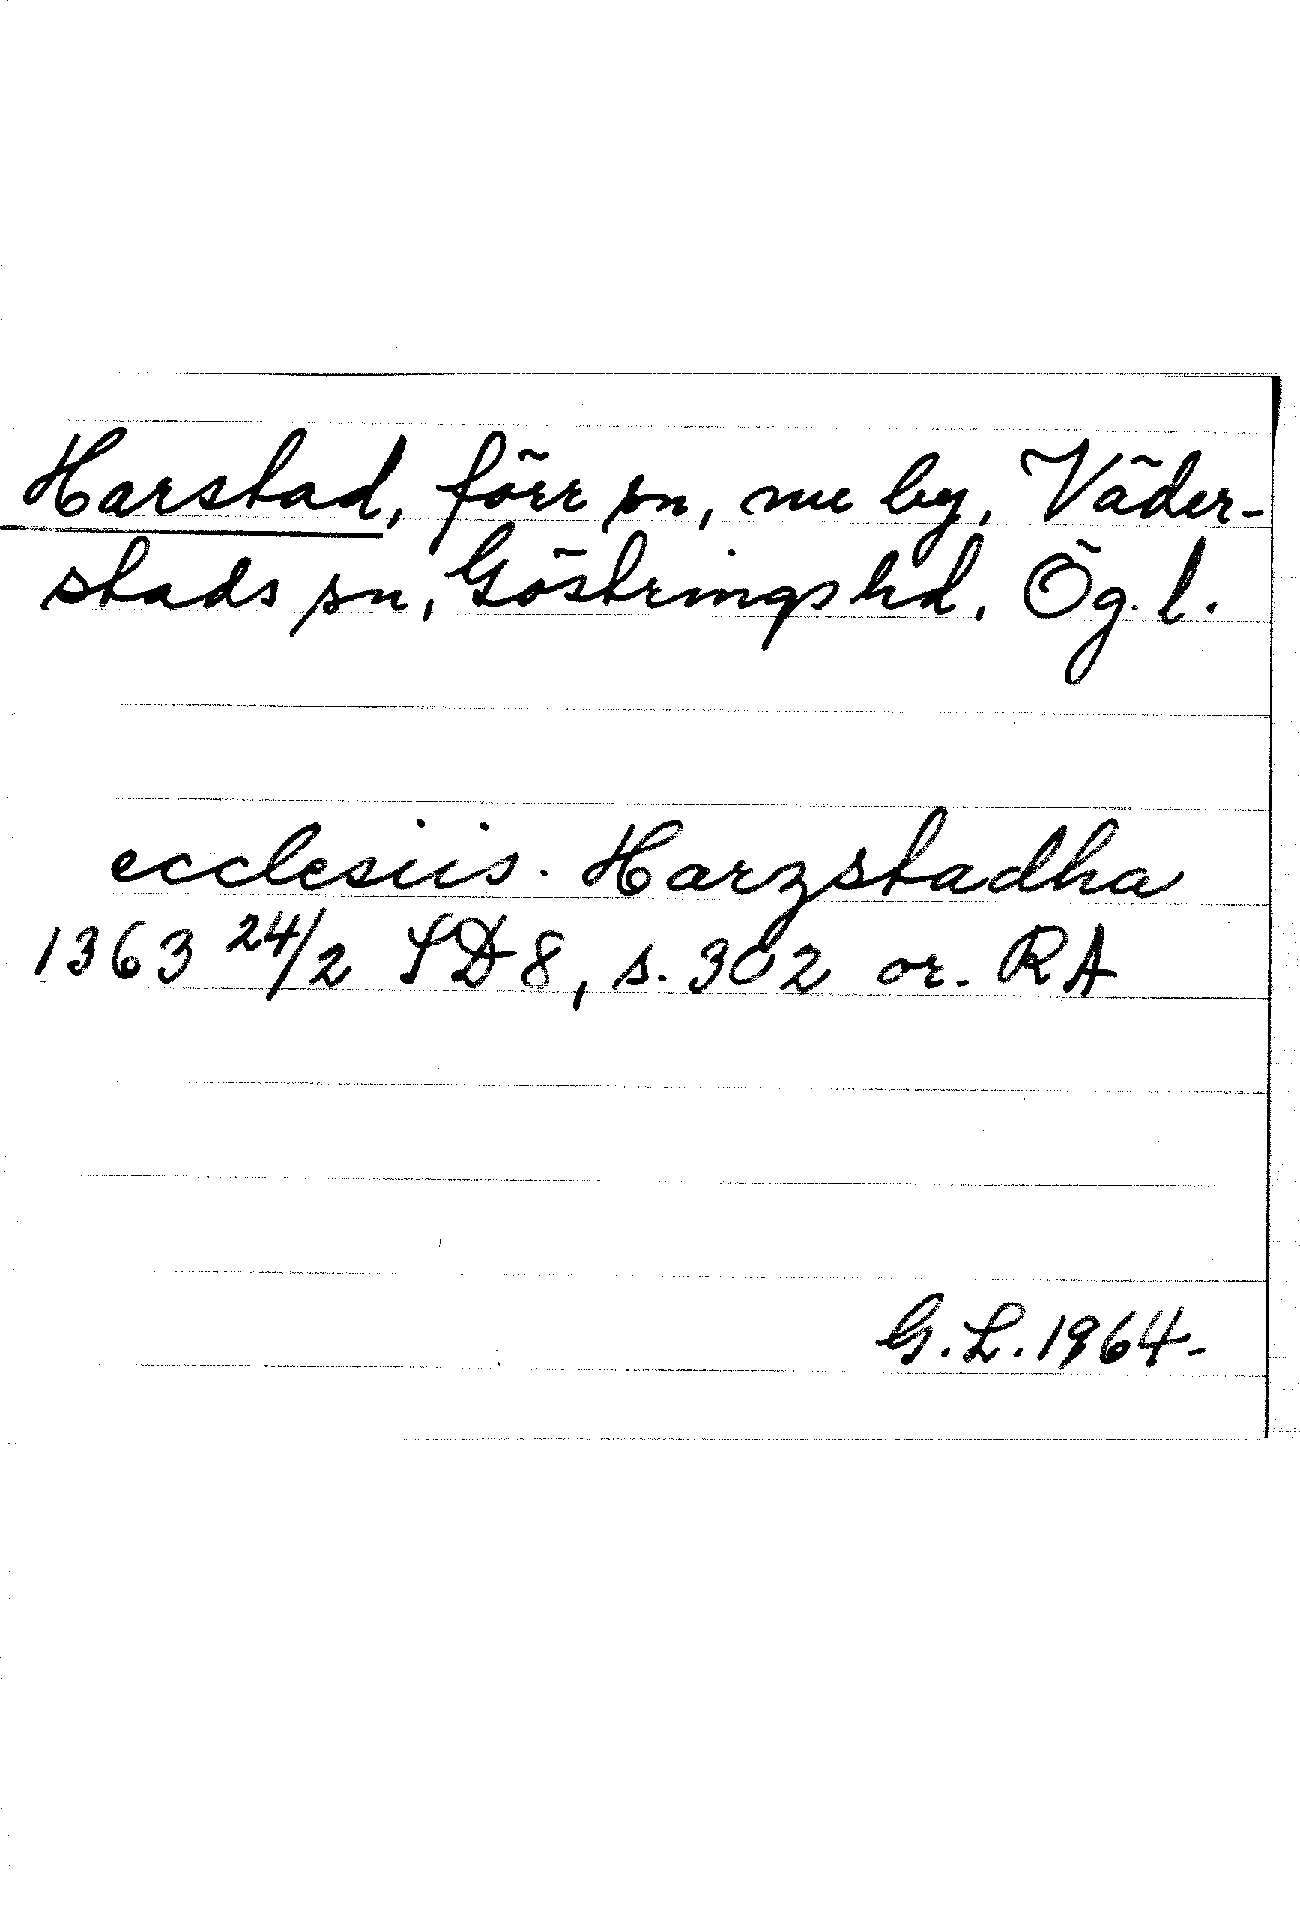 Harstad, förr sn, nu by, Väder-
stads sn, Göstrings hd, Ög. l.
ecclesiis. Harzstadha
1363 24/2 SD 8, s. 302 or. RA
G. L. 1964.